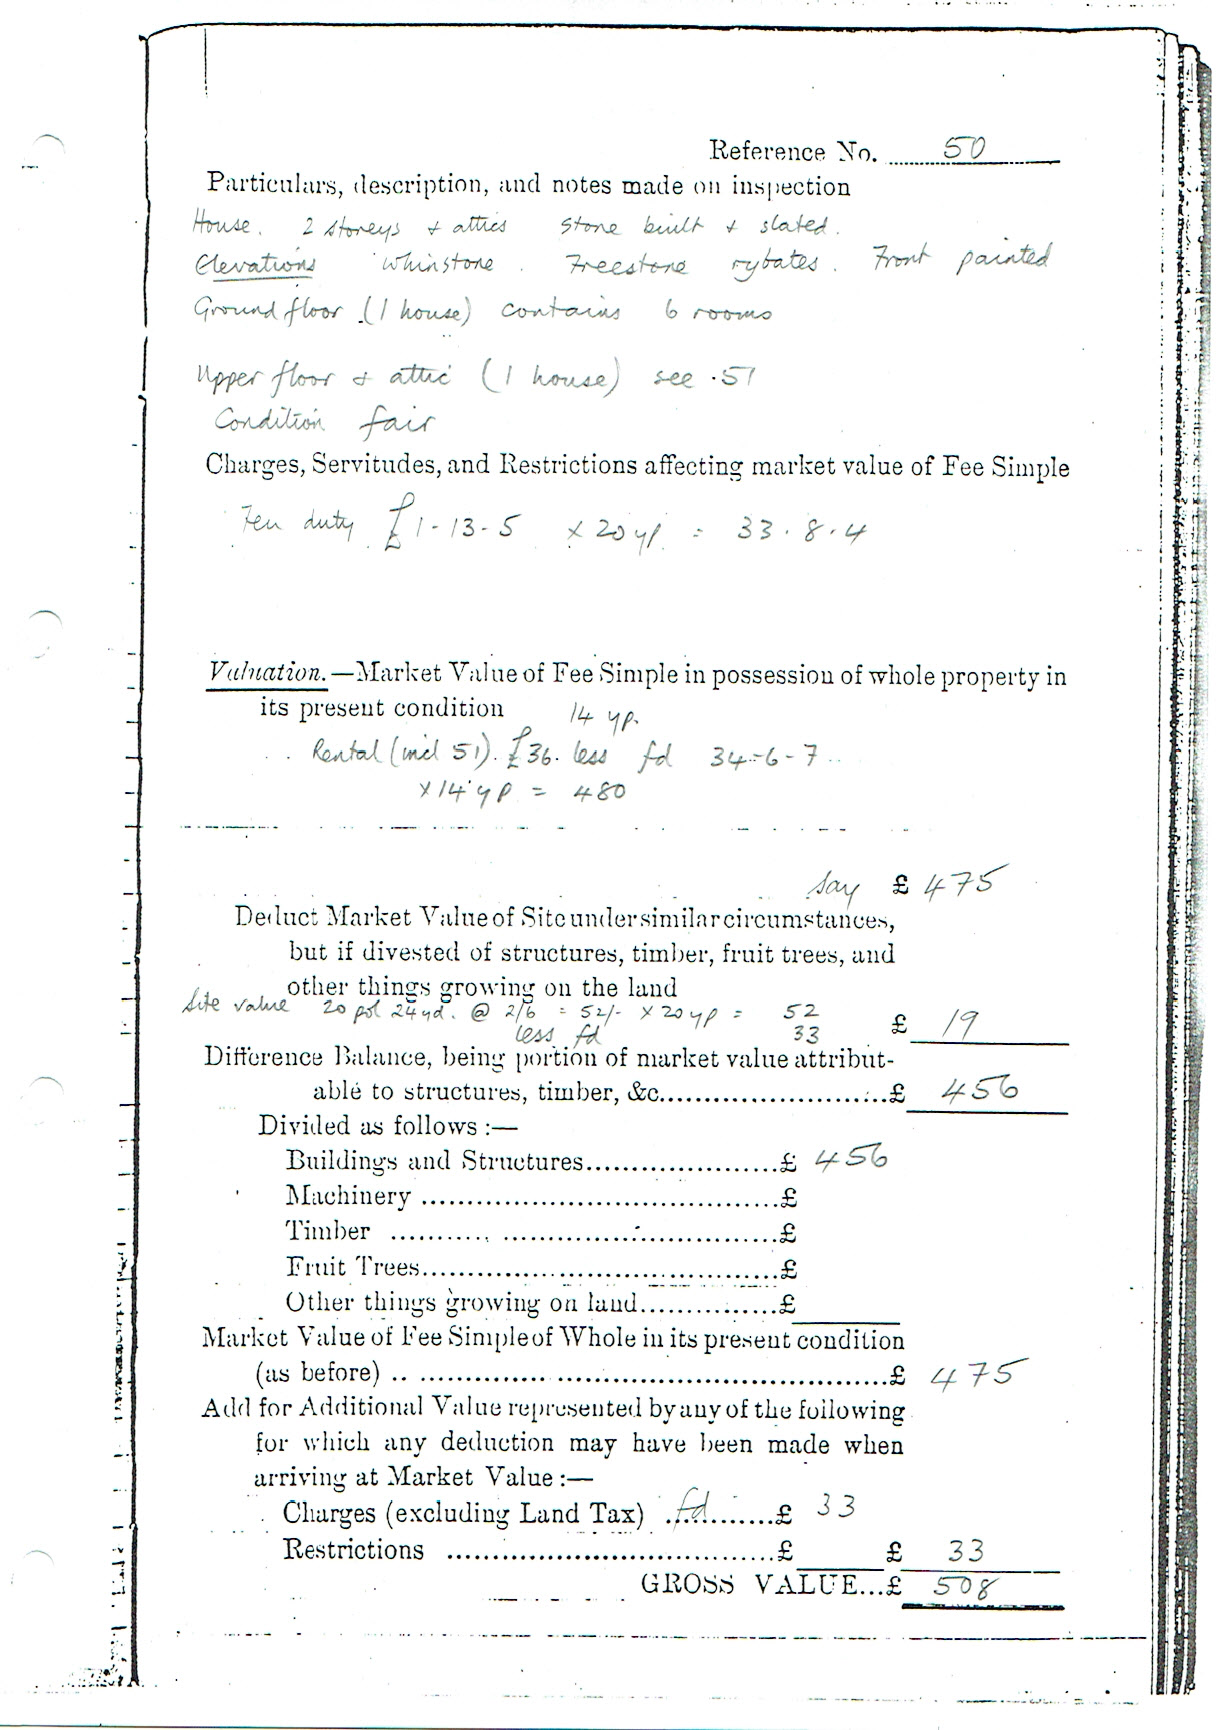 Reference No. 50
Particulars, description, and notes made on inspection
House. 2 storeys + attics stone built + slated.
Elevations Whinstone. Freestone rybates. Front painted
Ground floor (1 house) contains 6 rooms
Upper floor + attic (1 house) see 51
Condition fair
Charges, Servitudes, and Restrictions affecting market value of Fee Simple
Feu duty £1-13-5 x 20 yp = 33.8.4
Valuation.—Market Value of Fee Simple in possession of whole property in
its present condition 14 yp.
Rental (incl 51). £36. less fd 34-6-7
x 14 yp = 480
say £ 475
Deduct Market Value of Site under similar circumstances,
but if divested of structures, timber, fruit trees, and
other things growing on the land
Site value 20 pol 24 yd. @ 2/6 = 52/- x 20 yp = 52
less fd 33 £ 19
Difference Balance, being portion of market value attribut-
able to structures, timber, &c........................£ 456
Divided as follows :—
Buildings and Structures......................£ 456
Machinery .....................................£
Timber .....................................£
Fruit Trees.....................................£
Other things growing on land...............£
Market Value of Fee Simple of Whole in its present condition
(as before) .. ................................................£ 475
Add for Additional Value represented by any of the following
for which any deduction may have been made when
arriving at Market Value :—
Charges (excluding Land Tax) .fd........£ 33
Restrictions ...................................£ £ 33
GROSS VALUE...£ 508